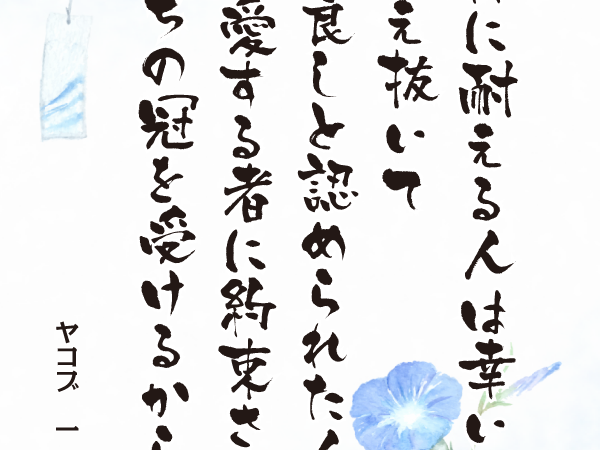 に耐える人は幸い
え抜いて
良しと認められた人
愛する者に約束さ
ちの冠を受けるから
ヤコブ 一